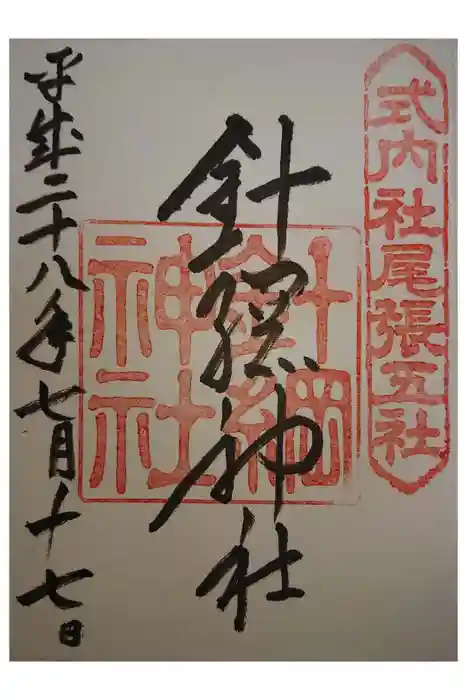 式内社尾張五社
針綱神社
針綱
神社
平成二十八年七月十七日